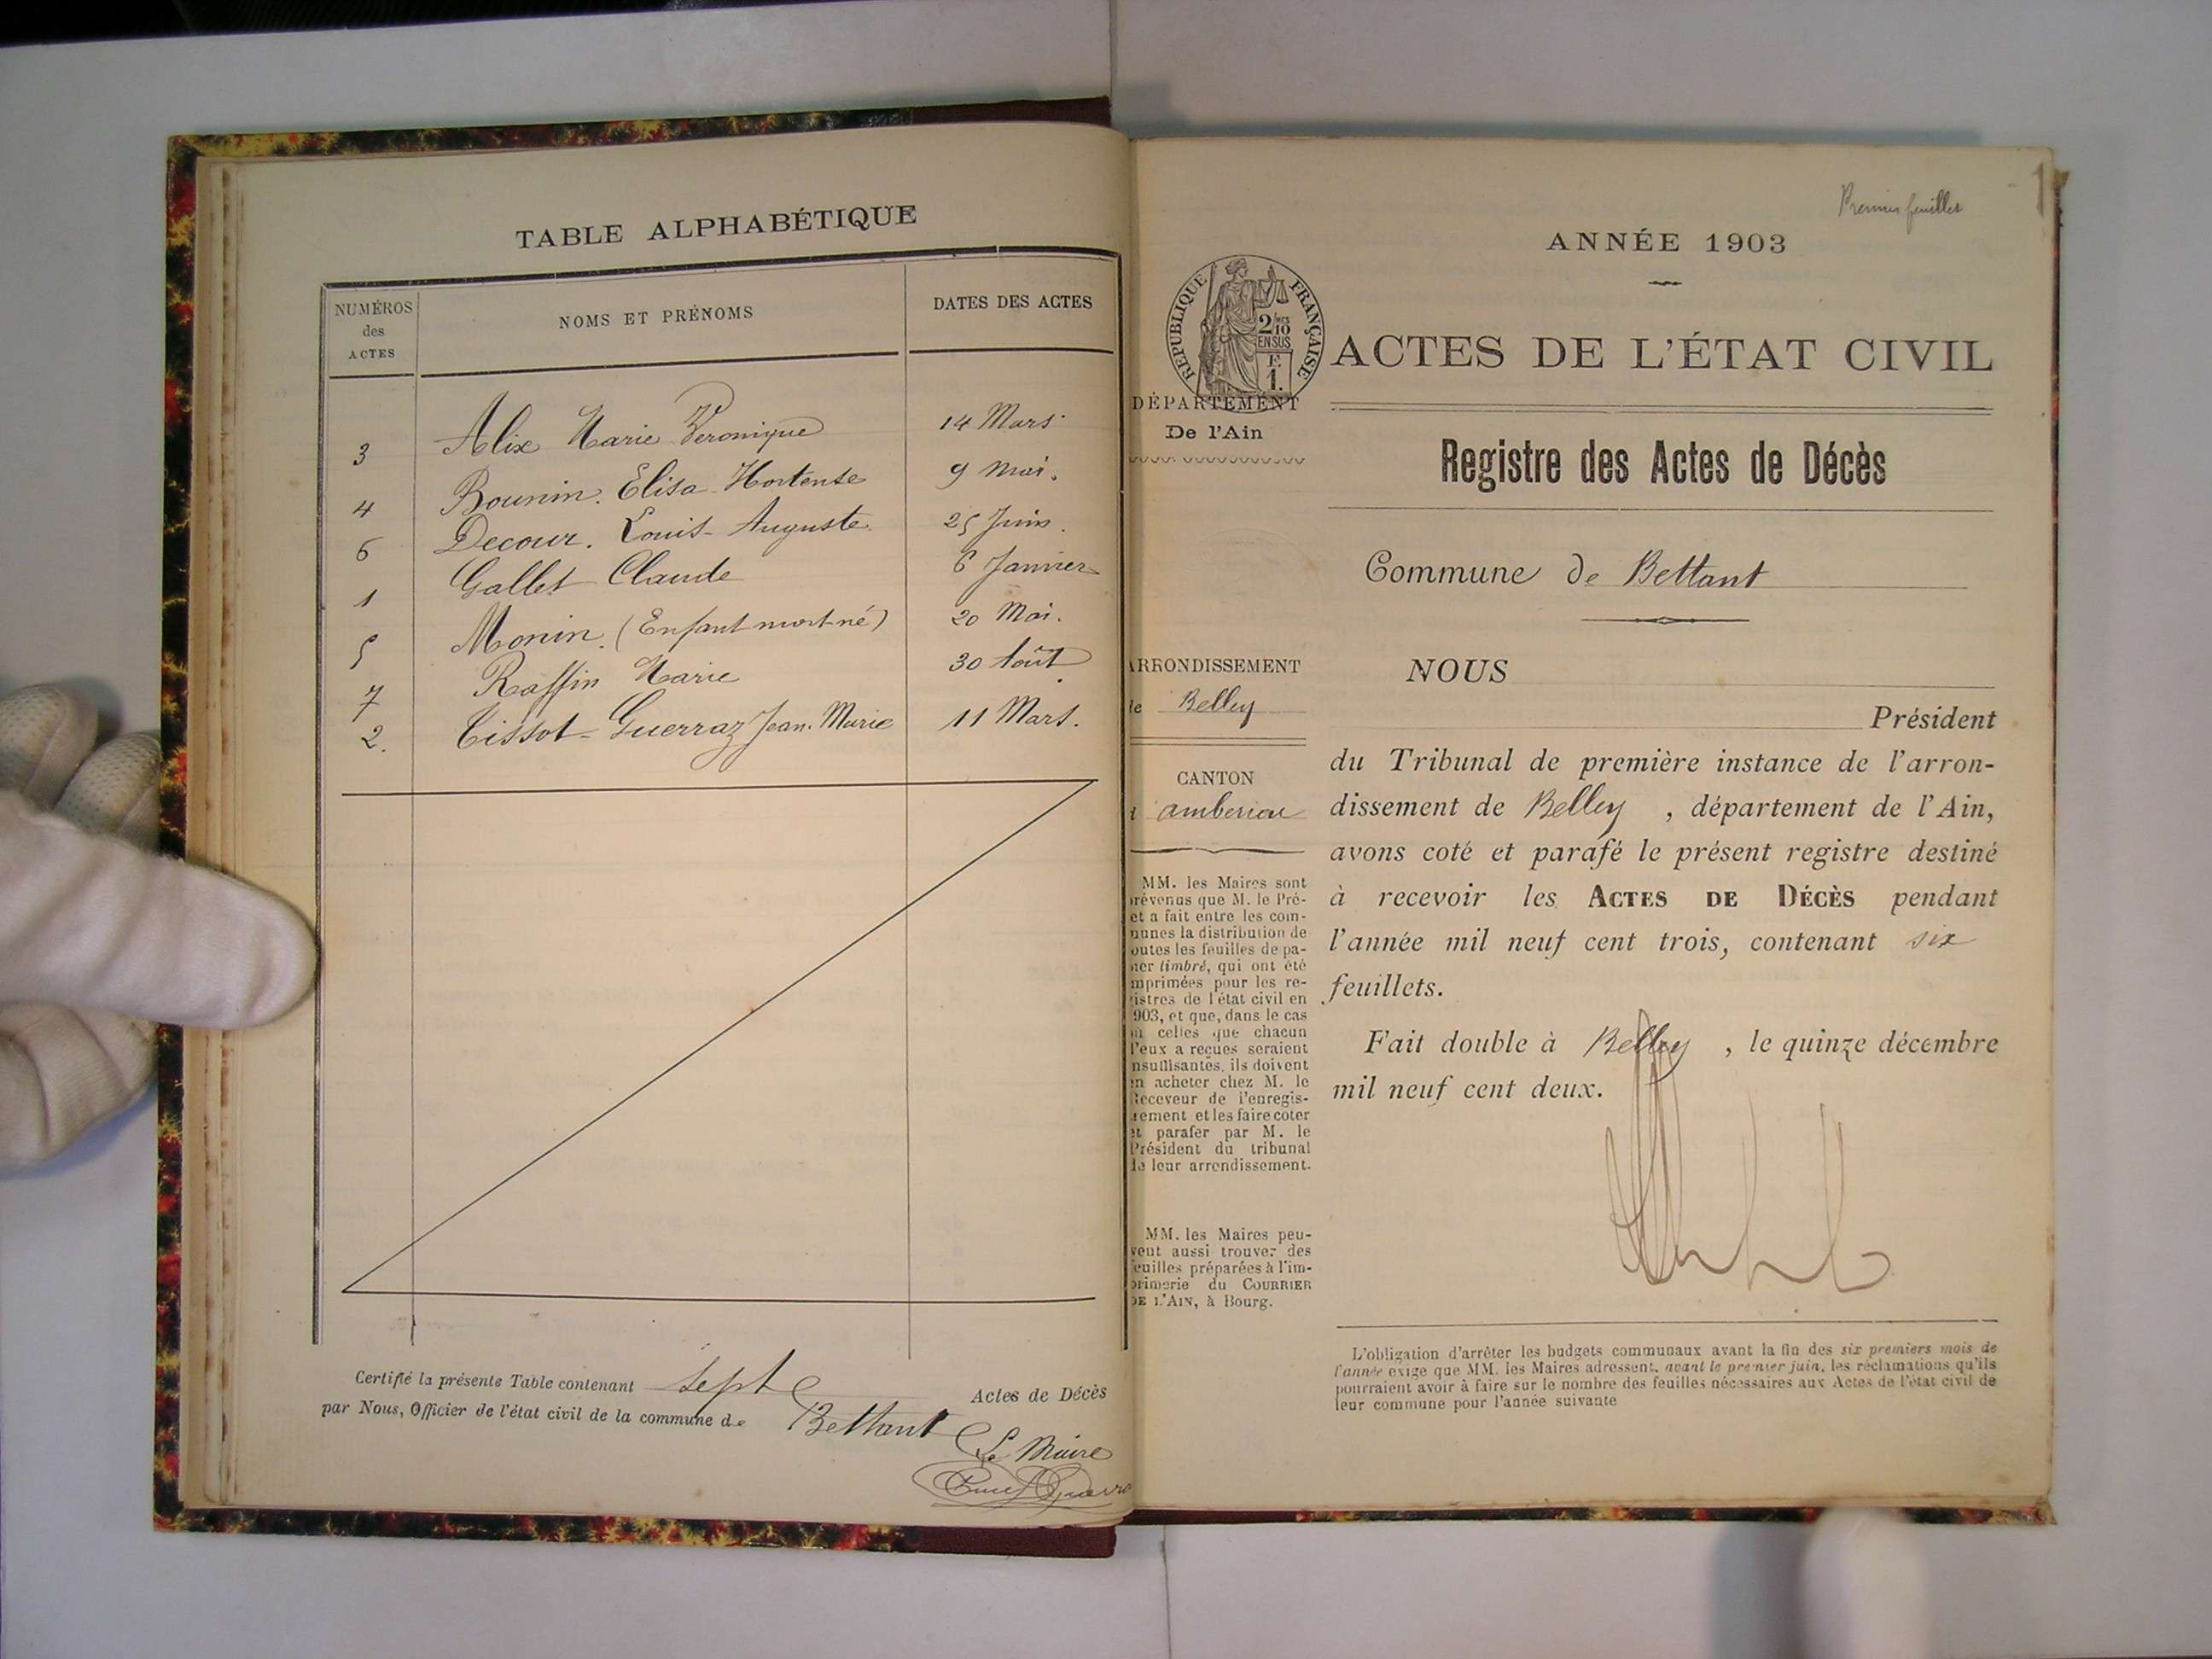 TABLE ALPHABÉTIQUE
NUMÉROS
des
ACTES
NOMS ET PRÉNOMS
DATES DES ACTES
3 Alix Marie Veronique 14 Mars
4 Bounin. Elisa Hortense 9 Mai.
6 Decour. Louis-Auguste 25 Juin.
1 Gallet Claude 6 Janvier
5 Monin. (Enfant mort-né) 20 Mai.
7 Raffin Marie 30 Août.
2. Tissot-Guerraz Jean-Marie 11 Mars.
Certifié la présente Table contenant sept Actes de Décès
par Nous, Officier de l'état civil de la commune de Bettant
Le Maire
Premier feuillet
ANNÉE 1903
RÉPUBLIQUE FRANÇAISE
2/10
EN SUS
1.
ACTES DE L'ÉTAT CIVIL
DÉPARTEMENT
De l'Ain
Registre des Actes de Décès
Commune de Bettant
ARRONDISSEMENT
de Belley
CANTON
amberieu
MM. les Maires sont
prévenus que M. le Pré-
et a fait entre les com-
munes la distribution de
toutes les feuilles de pa-
pier timbré, qui ont été
imprimées pour les re-
gistres de l'état civil en
1903, et que, dans le cas
où celles que chacun
d'eux a reçues seraient
insuffisantes, ils doivent
en acheter chez M. le
Receveur de l'enregis-
trement et les faire coter
et parafer par M. le
Président du tribunal
de leur arrondissement.
MM. les Maires peu-
vent aussi trouver des
feuilles préparées à l'im-
primerie du COURRIER
DE L'AIN, à Bourg.
NOUS
Président
du Tribunal de première instance de l'arron-
dissement de Belley , département de l'Ain,
avons coté et parafé le présent registre destiné
à recevoir les ACTES DE DÉCÈS pendant
l'année mil neuf cent trois, contenant six
feuillets.
Fait double à Belley , le quinze décembre
mil neuf cent deux.
L'obligation d'arrêter les budgets communaux avant la fin des six premiers mois de
l'année exige que MM. les Maires adressent, avant le premier juin, les réclamations qu'ils
pourraient avoir à faire sur le nombre des feuilles nécessaires aux Actes de l'état civil de
leur commune pour l'année suivante